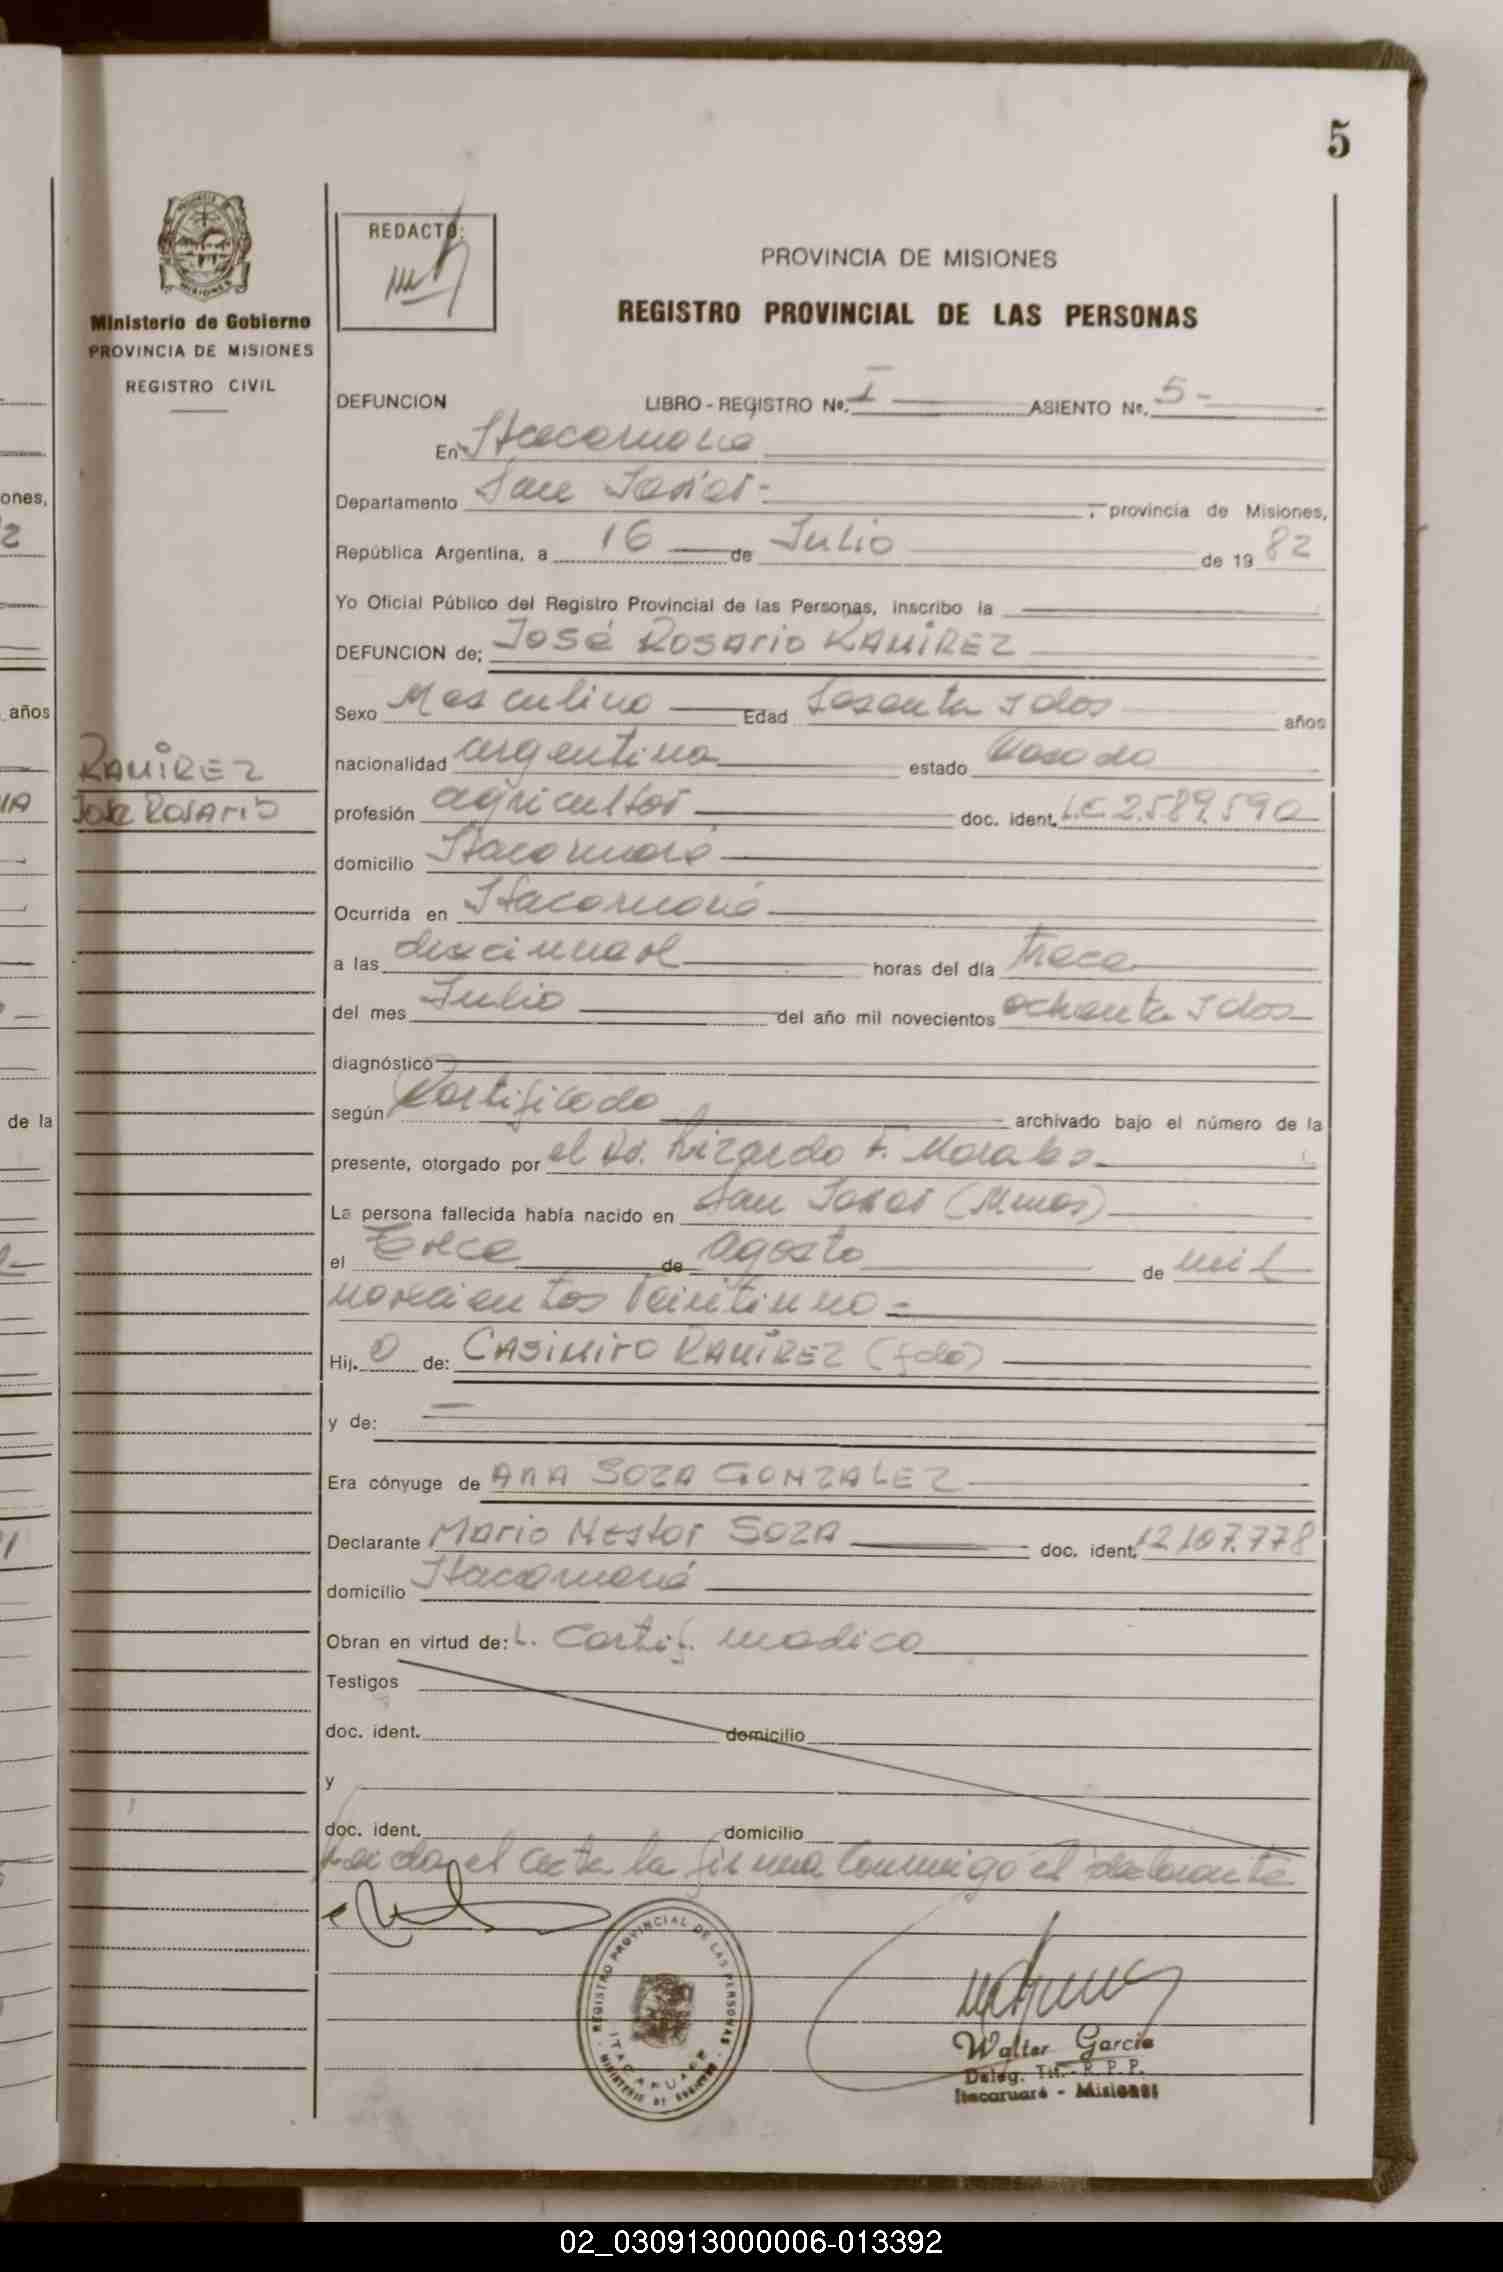 5
PROVINCIA DE MISIONES
REDACTO:
Ministerio de Gobierno
PROVINCIA DE MISIONES
REGISTRO CIVIL
PROVINCIA DE MISIONES
REGISTRO PROVINCIAL DE LAS PERSONAS
DEFUNCION LIBRO - REGISTRO Nº. I ASIENTO Nº. 5-
En Itacaruaré
Departamento San Javier- , provincia de Misiones,
República Argentina, a 16 de Julio de 19 82
Yo Oficial Público del Registro Provincial de las Personas, inscribo la
DEFUNCION de: José Rosario RAMIREZ
Sexo Masculino Edad Sesenta y dos años
nacionalidad argentina estado Casado
profesión agricultor doc. ident. L.E 2.589.590
domicilio Itacaruaré
Ocurrida en Itacaruaré
a las horas del día trece
del mes Julio del año mil novecientos ochenta y dos
diagnóstico
según Certificado archivado bajo el número de la
presente, otorgado por el Dr. Lizardo F. Morales
La persona fallecida había nacido en San Javier (Mnes)
el Trece de agosto de mil
novecientos Veintiuno =
Hij. o de: CASIMIRO RAMIREZ (fdo)
y de:
Era cónyuge de ANA SOZA GONZALEZ
Declarante Mario Nestor SOZA doc. ident. 12.107.778
domicilio Itacaruaré
Obran en virtud de: L. Certif. medico
Testigos
doc. ident. domicilio
y
doc. ident. domicilio
Leida el acta la firma conmigo el declarante
RAMIREZ
José Rosario
ones,
2
años
de la
REGISTRO PROVINCIAL DE LAS PERSONAS
ITACARUARE
MINISTERIO DE GOBIERNO
Walter Garcia
Deleg. Tit. - R. P. P.
Itacaruaré - Misiones
02_030913000006-013392